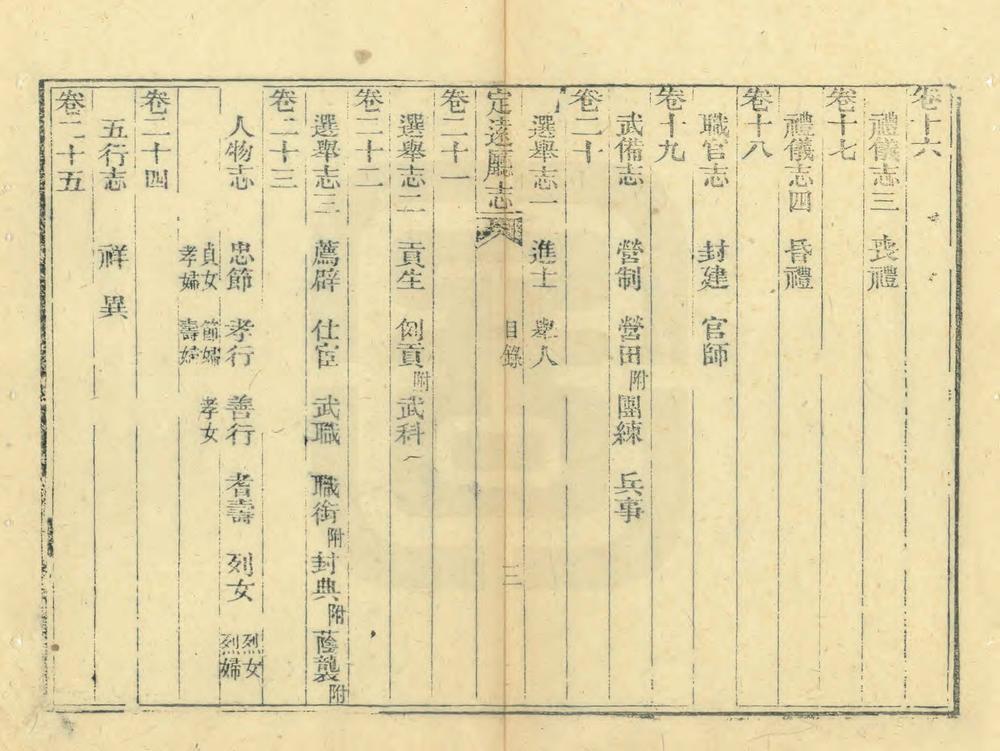 卷十六
禮儀志三 喪禮
卷十七
禮儀志四 昏禮
卷十八
職官志 封建 官師
卷十九
武備志 營制 營田附 團練 兵事
卷二十
選舉志一 進士 舉人
定遠廳志 目錄 三
卷二十一
選舉志二 貢生 例貢附 武科
卷二十二
選舉志三 薦辟 仕宦 武職 職銜附 封典附 蔭襲附
卷二十三
人物志 忠節 孝行 善行 耆壽 列女 烈女 烈婦
貞女 節婦 孝女
孝婦 壽婦
卷二十四
五行志 祥異
卷二十五